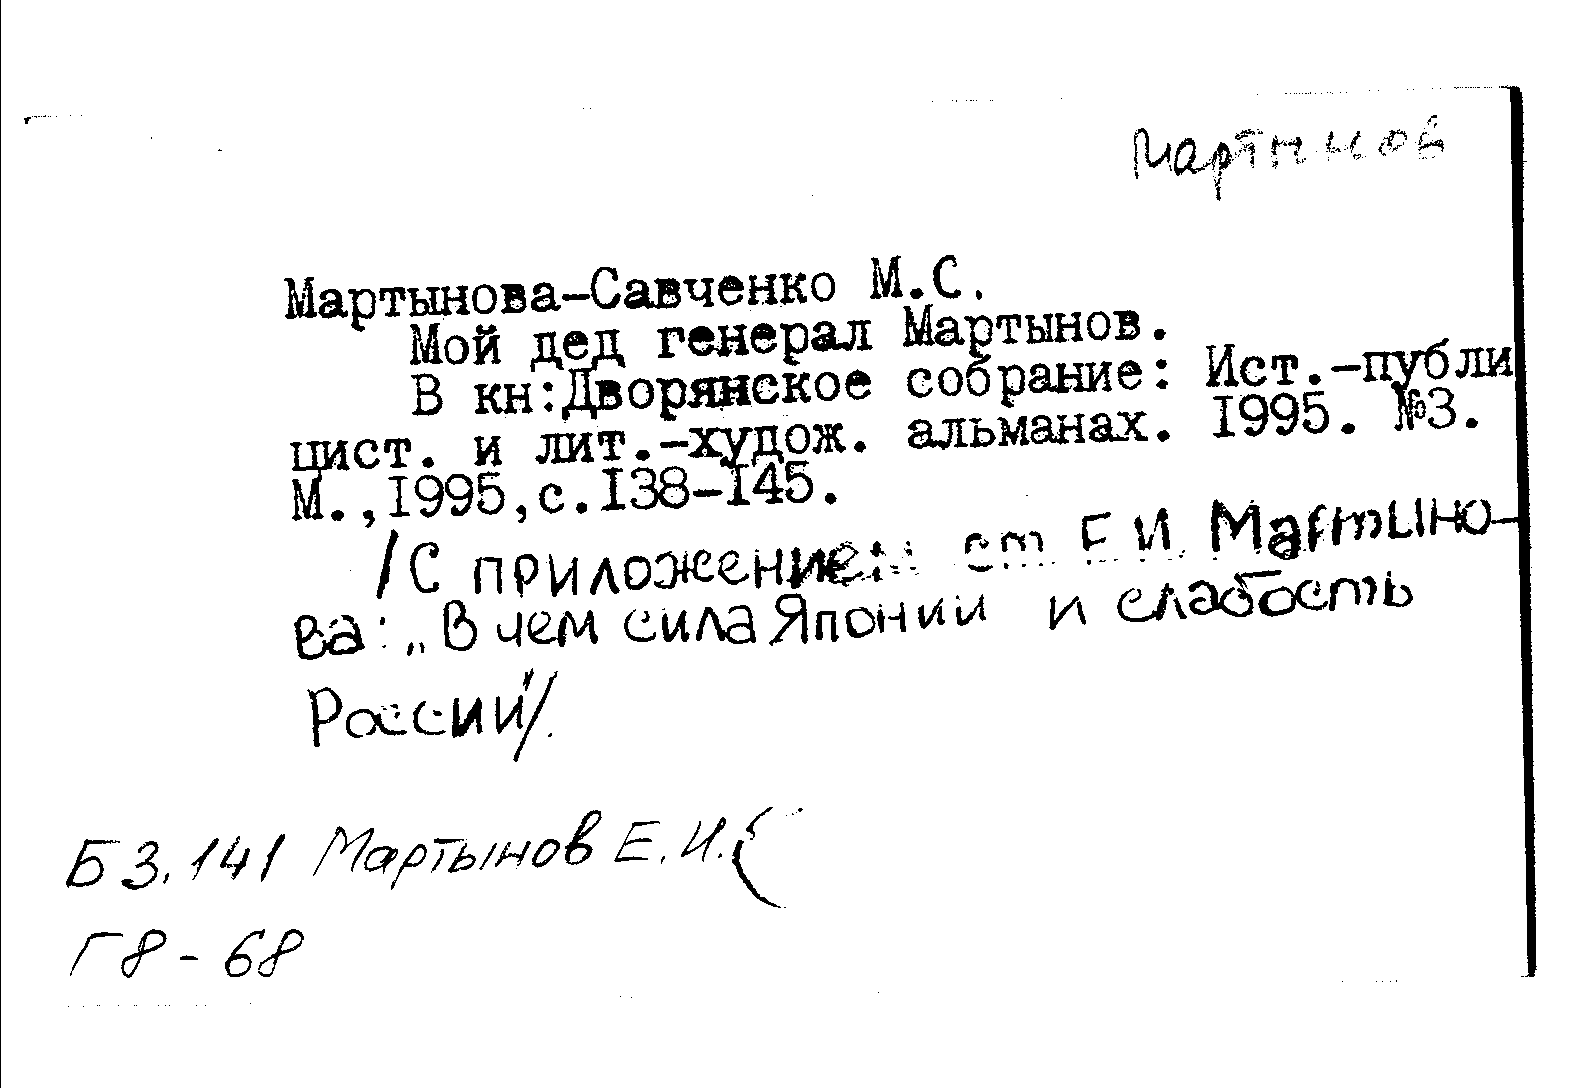 Мартынов
Мартынова-Савченко М.С.
Мой дед генерал Мартынов.
В кн:Дворянское собрание: Ист.-публи
цист. и лит.-худож. альманах. 1995. №3.
М.,1995,с.138-145.
/С приложением ст. Е.И. Мартыно-
ва: „В чем сила Японии и слабость
России"/.
Б3.141 Мартынов Е.И.(
Г8-68